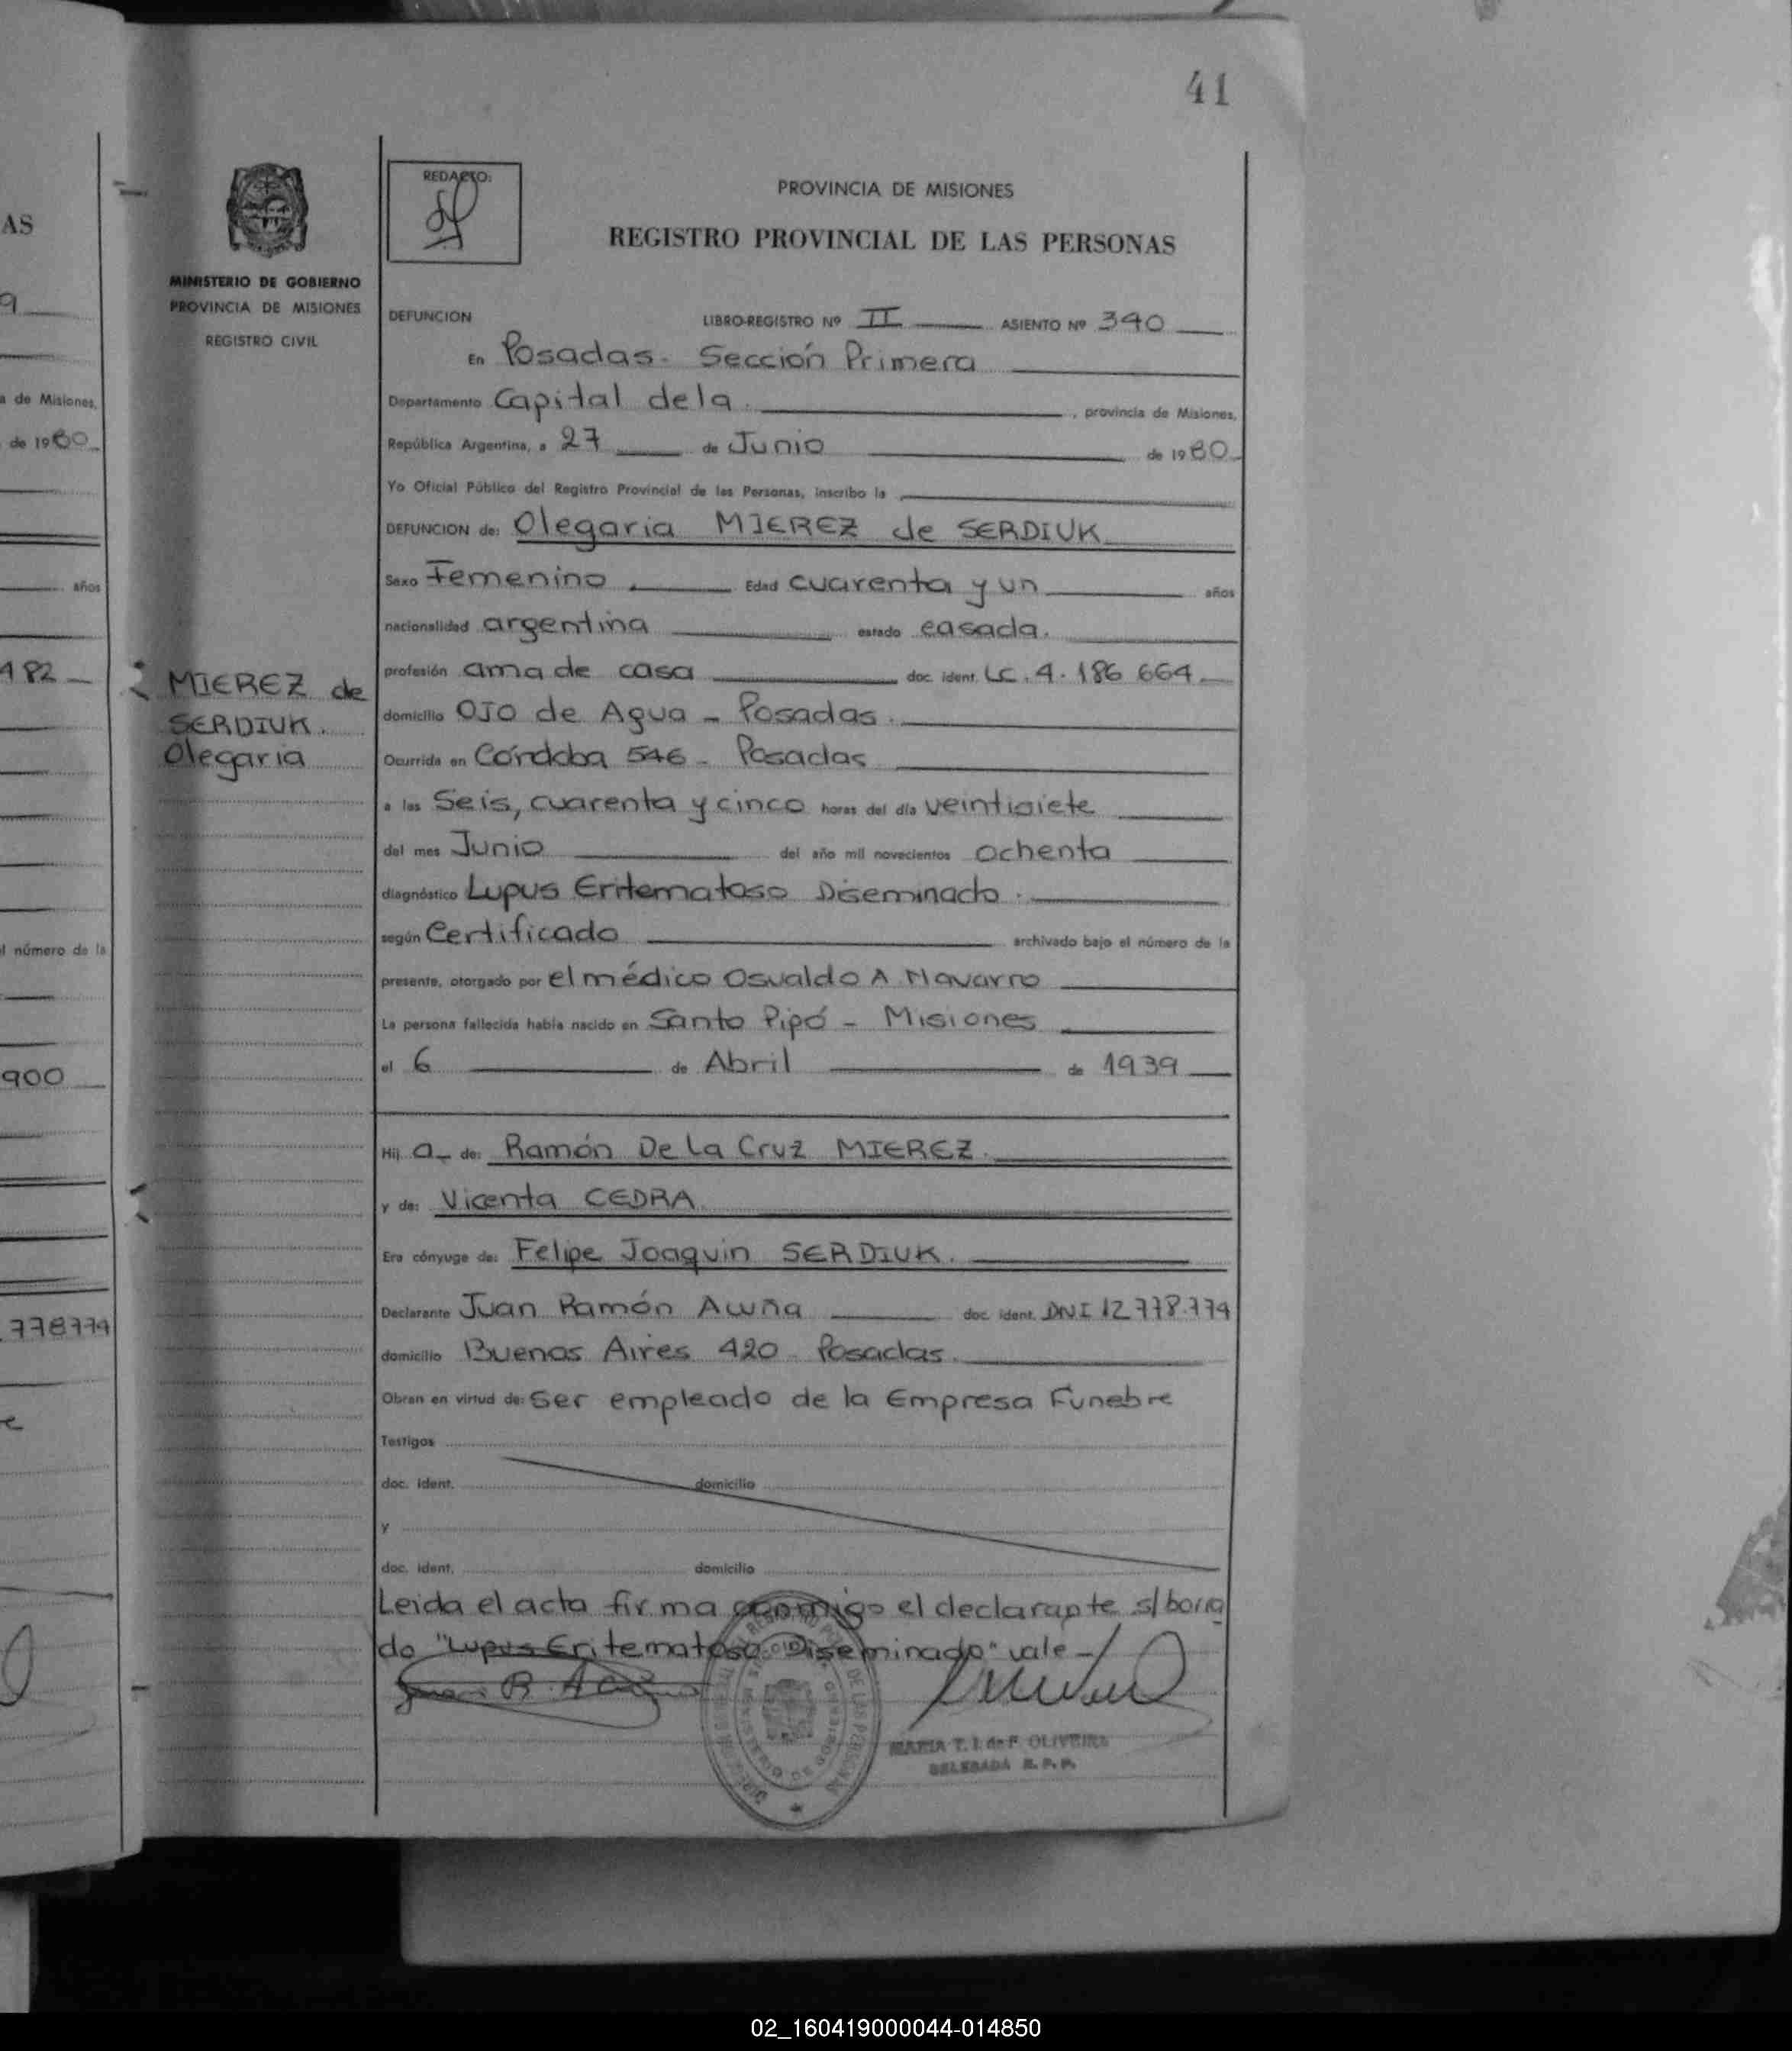 41
AS
9
a de Misiones,
de 1980
años
482
l número de la
900
778774
e
MINISTERIO DE GOBIERNO
PROVINCIA DE MISIONES
REGISTRO CIVIL
MIEREZ de
SERDIUK.
Olegaria
REDACTO:
PROVINCIA DE MISIONES
REGISTRO PROVINCIAL DE LAS PERSONAS
DEFUNCION LIBRO-REGISTRO Nº II ASIENTO Nº 340
En Posadas - Sección Primera
Departamento Capital de la , provincia de Misiones,
República Argentina, a 27 de Junio de 1980
Yo Oficial Público del Registro Provincial de las Personas, inscribo la
DEFUNCION de: Olegaria MIEREZ de SERDIUK
Sexo Femenino Edad cuarenta y un años
nacionalidad argentina estado casada.
profesión ama de casa doc. ident. LC. 4.186 664
domicilio Ojo de Agua - Posadas.
Ocurrida en Córdoba 546 - Posadas
a las Seis, cuarenta y cinco horas del día veintisiete
del mes Junio del año mil novecientos ochenta
diagnóstico Lupus Eritematoso Diseminado.
según Certificado archivado bajo el número de la
presente, otorgado por el médico Osvaldo A. Navarro
La persona fallecida había nacido en Santo Pipó - Misiones
el 6 de Abril de 1939
Hij a de: Ramón De La Cruz MIEREZ.
y de: Vicenta CEDRA.
Era cónyuge de: Felipe Joaquin SERDIUK.
Declarante Juan Ramón Acuña doc. ident. DNI 12.778.774
domicilio Buenos Aires 420 - Posadas.
Obran en virtud de: Ser empleado de la Empresa Funebre
Testigos
doc. ident. domicilio
y
doc. ident. domicilio
Leida el acta firma conmigo el declarante s/borra
do "Lupus Eritematoso Diseminado" vale -
MARIA T. I. de F. OLIVEIRA
DELEGADA R. P. P.
02_160419000044-014850